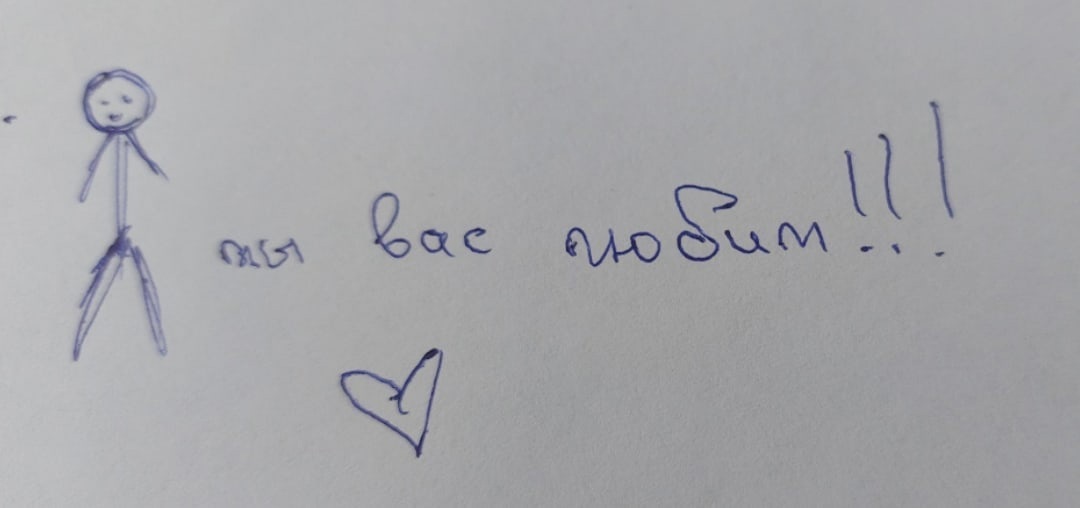 мы вас любим!!!